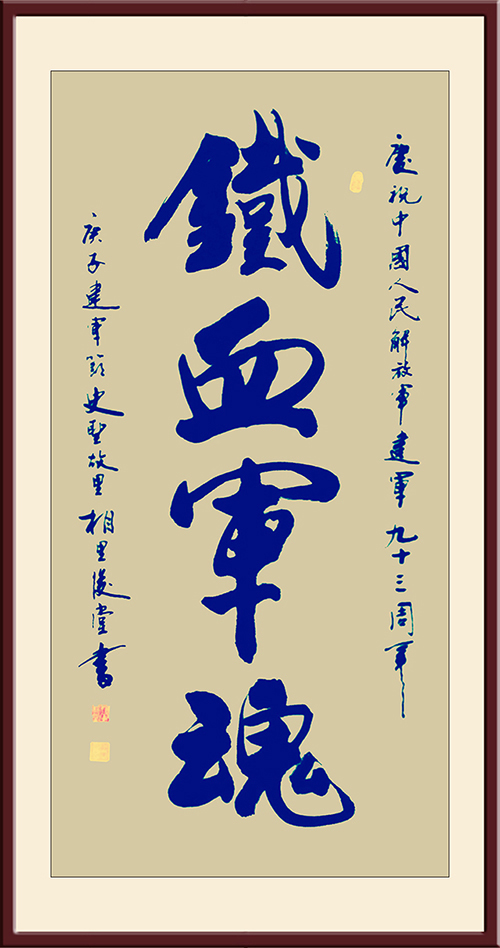 慶祝中國人民解放軍建軍九十三周年
鐵血軍魂
庚子建軍節史聖故里相里堂書